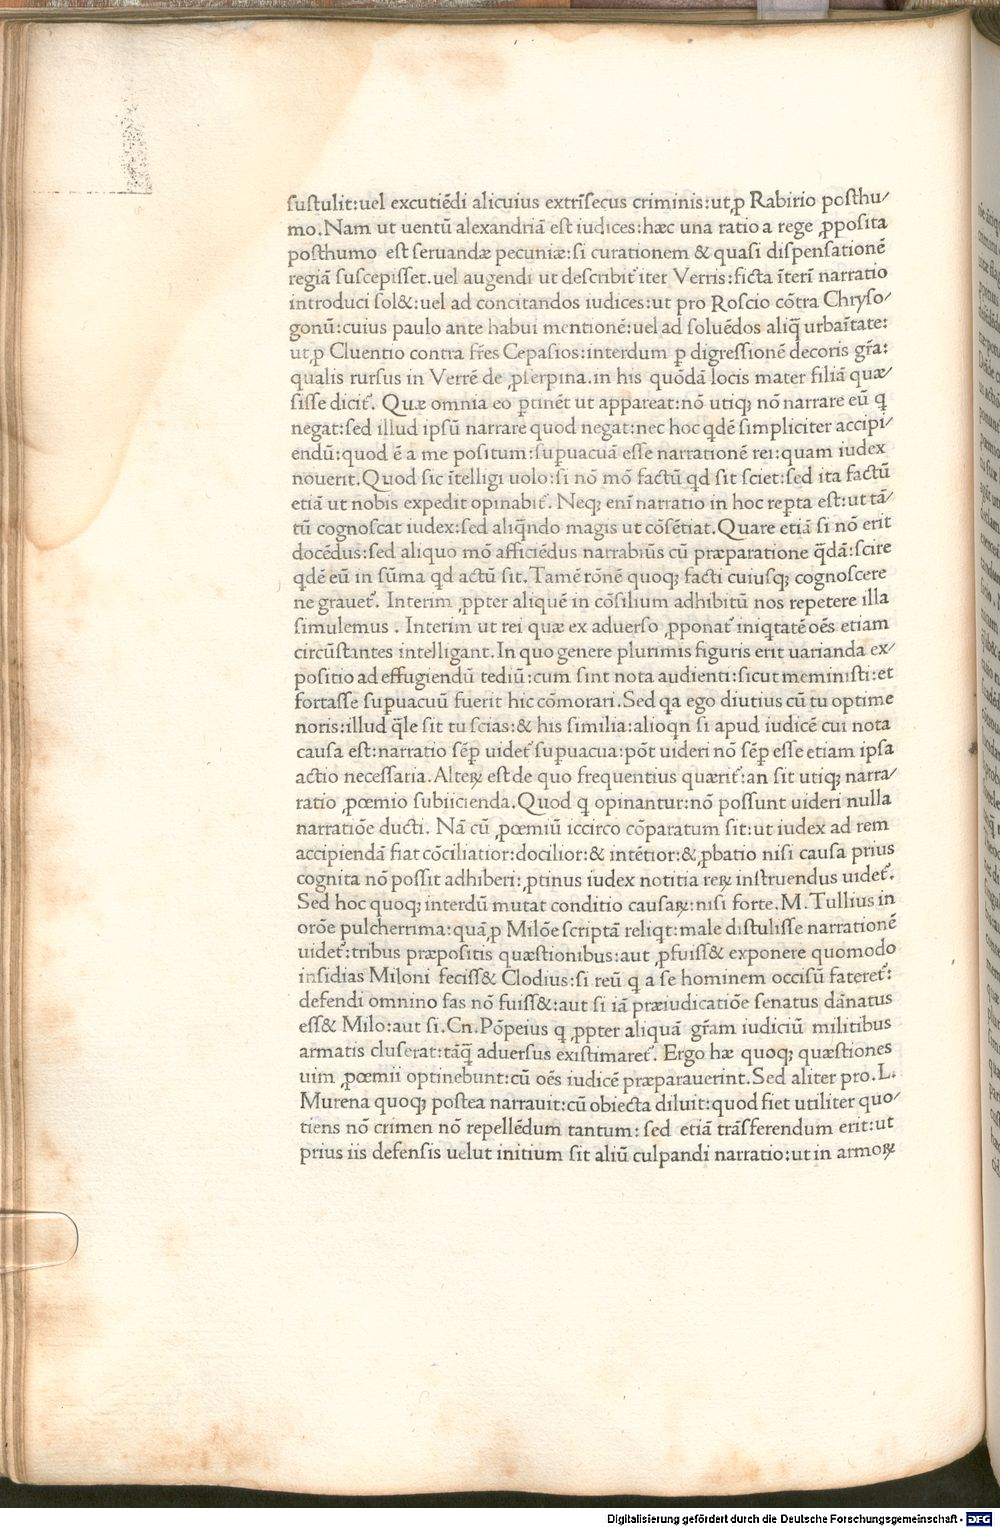 ſuſtulit:uel excutiēdi alicuius extrīſecus criminis:ut ꝓ Rabirio poſthu/
mo.Nam ut uentū alexandriā eſt iudices:hæc una ratio a rege ꝓpoſita
poſthumo eſt ſeruandæ pecuniæ:ſi curationem & quaſi diſpenſationē
regiā ſuſcepiſſet.uel augendi ut deſcribit᷑ iter Verris:ficta īterī narratio
introduci ſol&:uel ad concitandos iudices:ut pro Roſcio cōtra Chryſo/
gonū:cuius paulo ante habui mentionē:uel ad ſoluēdos aliq̄ urbaītate:
ut ꝓ Cluentio contra fr̄es Cepaſios:interdum ꝑ digreſſionē decoris gr̄a:
qualis rurſus in Verrē de ꝓſerpina.in his quōdā locis mater filiā quæ/
ſiſſe dicit᷑. Quæ omnia eo ꝑtinēt ut appareat:nō utiqꝫ nō narrare eū q̇
negat:ſed illud ipſū narrare quod negat:nec hoc q̇dē ſimpliciter accipi/
endū:quod ē a me poſitum:ſuꝑuacuā eſſe narrationē rei:quam iudex
nouerit.Quod ſic ītelligi uolo:ſi nō mō factū qd ſit ſciet:ſed ita factū
etiā ut nobis expedit opinabit᷑. Neqꝫ enī narratio in hoc reꝑta eſt:ut tā/
tū cognoſcat iudex:ſed aliq̄ndo magis ut cōſētiat.Quare etiā ſi nō erit
docēdus:ſed aliquo mō afficiēdus narrabiūs cū præparatione q̄dā:ſcire
q̇dē eū in ſūma qd actū ſit.Tamē rōnē quoqꝫ facti cuiuſqꝫ cognoſcere
ne grauet᷑. Interim ꝓpter aliquē in cōſilium adhibitū nos repetere illa
ſimulemus . Interim ut rei quæ ex aduerſo ꝓponat᷑ iniq̇tatē oēs etiam
circūſtantes intelligant.In quo genere plurimis figuris erit uarianda ex/
poſitio ad effugiendū tediū:cum ſint nota audienti:ſicut meminiſti:et
fortaſſe ſuꝑuacuū fuerit hic cōmorari.Sed q̇a ego diutius cū tu optime
noris:illud q̄le ſit tu ſcias:& his ſimilia:alioq̇n ſi apud iudicē cui nota
cauſa eſt:narratio ſēꝑ uidet᷑ ſuꝑuacua:pōt uideri nō ſēꝑ eſſe etiam ipſa
actio neceſſaria.Alteꝝ eſt de quo frequentius quærit᷑:an ſit utiqꝫ narra/
ratio ꝓœmio ſubiicienda.Quod q̇ opinantur:nō poſſunt uideri nulla
narratiōe ducti. Nā cū ꝓœmiū iccirco cōparatum ſit:ut iudex ad rem
accipiendā fiat cōciliatior:docilior:& intētior:& ꝓbatio niſi cauſa prius
cognita nō poſſit adhiberi:ꝓtinus iudex notitia reꝝ inſtruendus uidet᷑.
Sed hoc quoqꝫ interdū mutat conditio cauſaꝝ:niſi forte.M.Tullius in
orōe pulcherrima:quā ꝓ Milōe ſcriptā reliq̇t:male diſtuliſſe narrationē
uidet᷑:tribus præpoſitis quæſtionibus:aut ꝓfuiſſ& exponere quomodo
inſidias Miloni feciſſ& Clodius:ſi reū q̇ a ſe hominem occiſū fateret᷑:
defendi omnino fas nō fuiſſ&:aut ſi iā præiudicatiōe ſenatus dānatus
eſſ& Milo:aut ſi.Cn.Pōpeius q̇ ꝓpter aliquā gr̄am iudiciū militibus
armatis cluſerat:tāq̄ aduerſus exiſtimaret᷑. Ergo hæ quoqꝫ quæſtiones
uim ꝓœmii optinebunt:cū oēs iudicē præparauerint.Sed aliter pro.L.
Murena quoqꝫ poſtea narrauit:cū obiecta diluit:quod fiet utiliter quo/
tiens nō crimen nō repellēdum tantum: ſed etiā trāſferendum erit:ut
prius iis defenſis uelut initium ſit aliū culpandi narratio:ut in armoꝝ
Digitalisierung gefördert durch die Deutsche Forschungsgemeinschaft - DFG